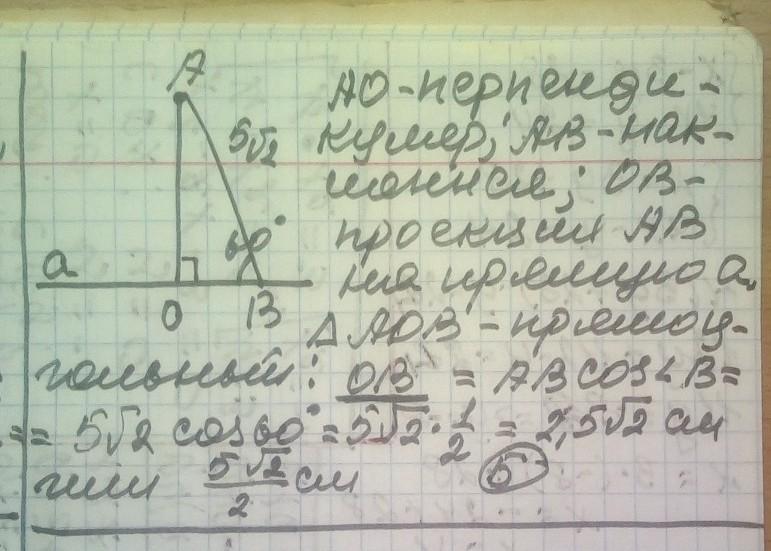 A
5√2
60°
a
O
B
АО-перпенди-
куляр; АВ-нак-
лонная; ОВ-
проекция АВ
на прямую а.
Δ АОВ - прямоу-
гольный: ОВ = АВ cos∠B =
== 5√2 cos60° = 5√2 · 1/2 = 2,5√2 см
или 5√2/2 см
Б